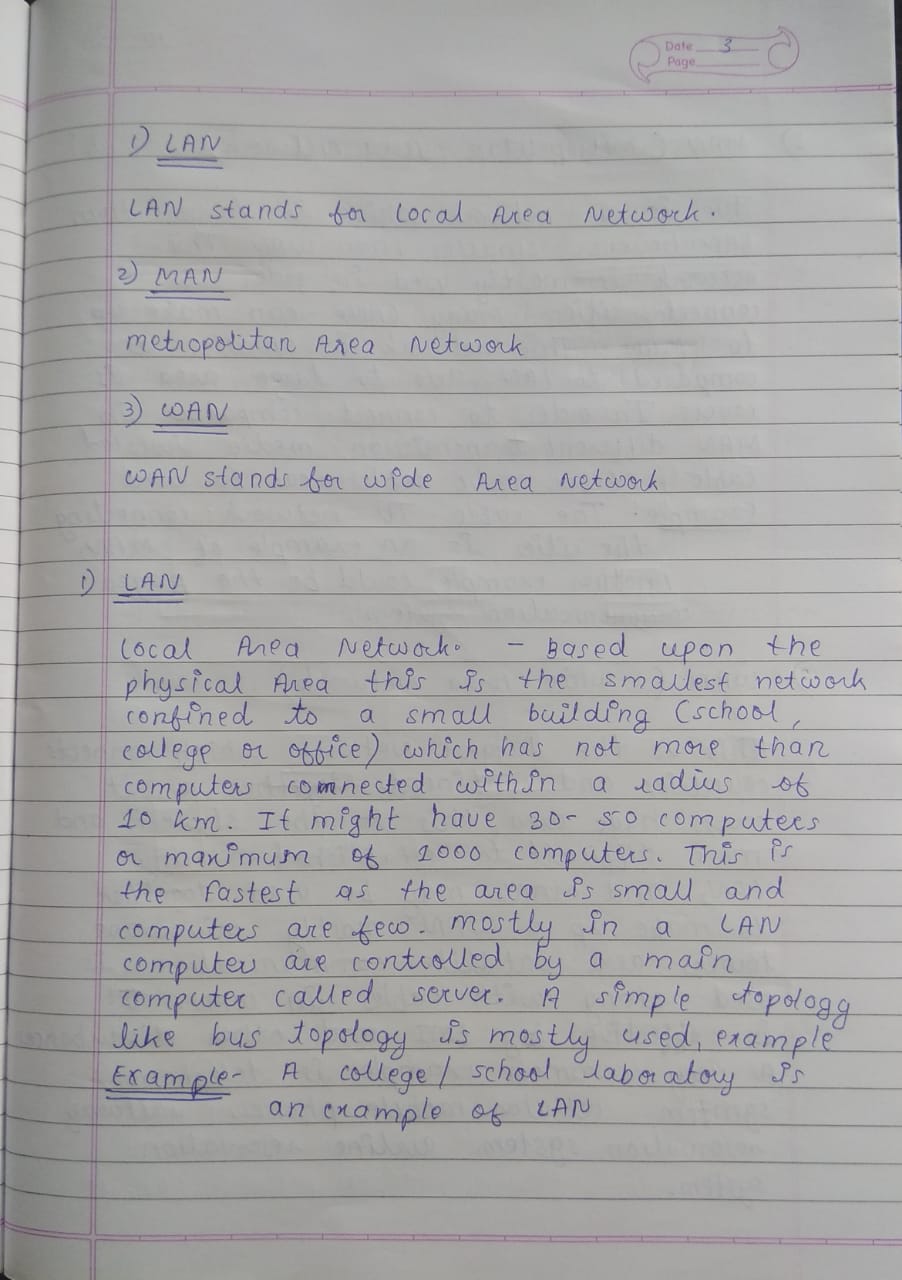 Date 3
Page
1) LAN
LAN stands for Local Area Network.
2) MAN
metropolitan Area Network
3) WAN
WAN stands for wide Area Network
1) LAN
Local Area Network. - Based upon the
physical Area this is the smallest network
confined to a small building (school,
college or office) which has not more than
computers connected within a radius of
10 km. It might have 30-50 computers
or maximum of 1000 computers. This is
the fastest as the area is small and
computers are few. mostly in a LAN
computer are controlled by a main
computer called server. A simple topology
like bus topology is mostly used, example
Example- A college/ school laboratory is
an example of LAN